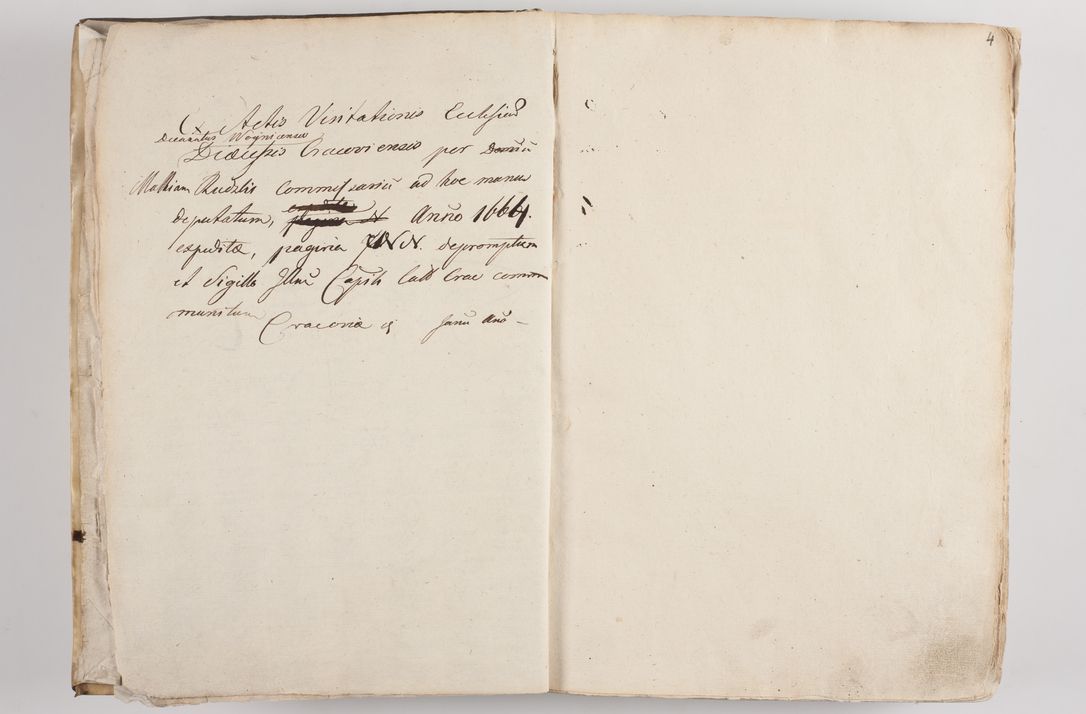 4
Ex Actis Visitationis Ecclesiar
Decanatus Woynicensis
Dioecesis Cracoviensis per Domin̄
Mathiam Rudzki Commissariū ad hoc munus
deputatum, Anno 1664.
expeditæ, pagina N. depromptum
et Sigillo Illmi Capli Cath Crac comm
munitum
Cracoviæ d Janu Ano –